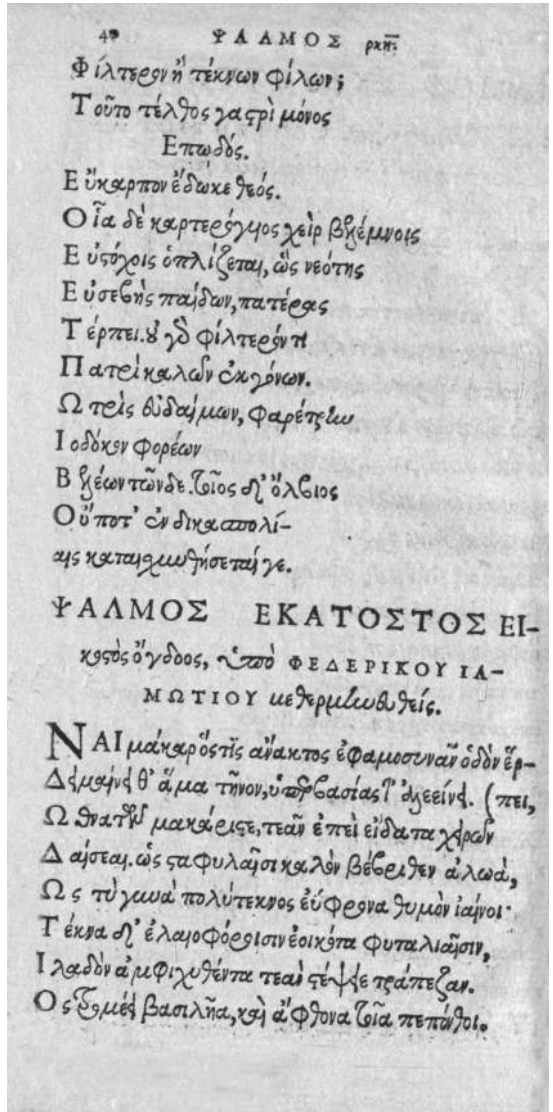 40 ΨΑΛΜΟΣ ρκη.
Φίλτερον ἢ τέκνων φίλων;
Τοῦτο τέλθος γαστρὶ μόνος
Επωδός.
Εὔκαρπον ἔδωκε θεός.
Οἷα δὲ καρτερόγυιος χεὶρ βελέμνοις
Εὐστόχοις ὁπλίζεται, ὣς νεότης
Εὐσεβὴς παίδων, πατέρας
Τέρπει. οὐ γὰρ φίλτερόν τι
Πατρὶ καλῶν ἐκγόνων.
Ω τρὶς εὐδαίμων, φαρέτρην
Ιοδόκον φορέων
Βελέων τῶνδε. τοῖος δ' ὄλβιος
Οὔποτ' ἐν δικασπολί-
αις καταισχυνθήσεταί γε.
ΨΑΛΜΟΣ ΕΚΑΤΟΣΤΟΣ ΕΙ-
κοστὸς ὄγδοος, ὑπὸ ΦΕΔΕΡΙΚΟΥ ΙΑ-
ΜΩΤΙΟΥ μεθερμηνευθείς.
ΝΑΙ μάκαρ ὅστις ἄνακτος ἐφαμοσυνᾶν ὁδὸν ἕρ-
Δειμαίνει θ' ἅμα τῆνον, ὑπερβασίας τ' ἀλεείνει. (πει,
Ω θνατῶν μακάριστε, τεᾶν ἐπεὶ εἴδατα χειρῶν
Δαίσεαι. ὡς σταφυλαῖσι καλὸν βέβριθεν ἀλωά,
Ως τὺ γυνὰ πολύτεκνος εὔφρονα θυμὸν ἰαίνοι·
Τέκνα δ' ἐλαιοφόροισιν ἐοικότα φυταλιαῖσιν,
Ιλαδὸν ἀμφιχυθέντα τεαν στέψειε τράπεζαν.
Ος τρομέει βασιλῆα, καὶ ἄφθονα τοῖα πεπόνθοι.